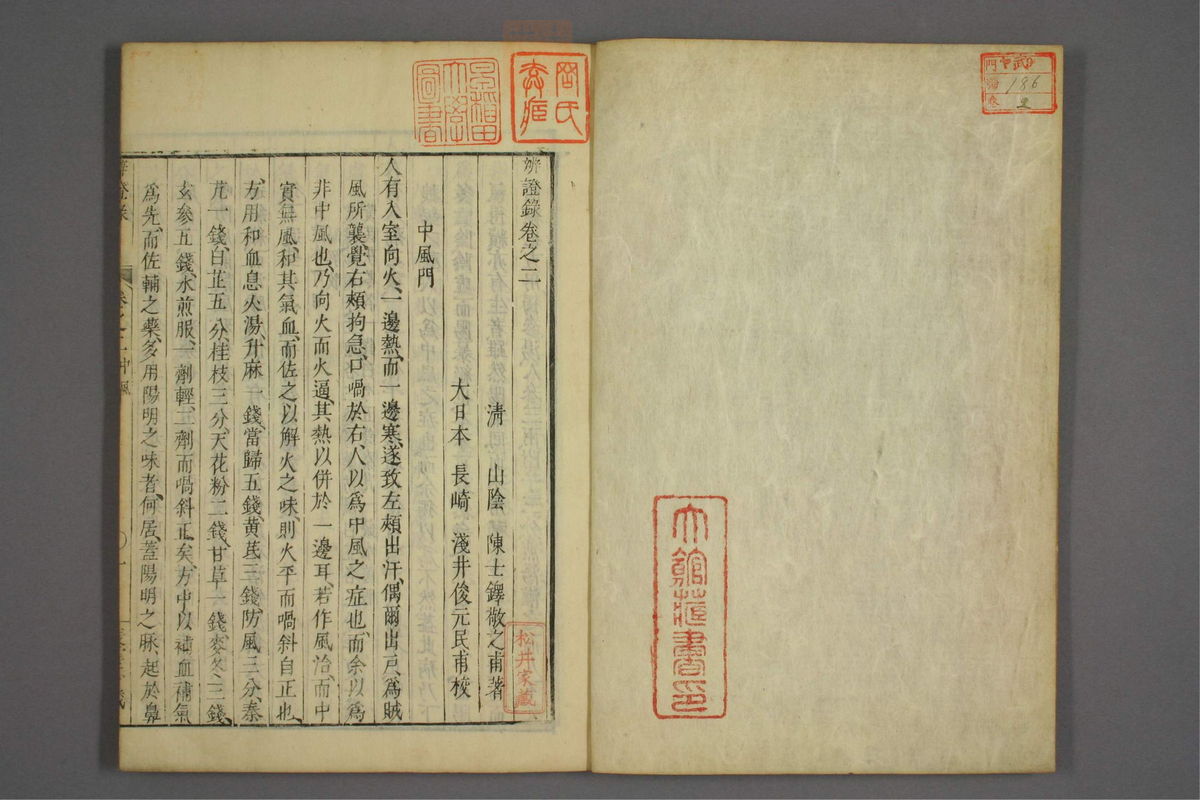 辨證錄卷之二
清　山陰　陳士鐸敬之甫著
大日本　長崎　淺井俊元民甫校
中風門
人有入室向火、一邊熱、而一邊寒、遂致左頰出汗、偶爾出戶、爲賊
風所襲、覺右頰拘急、口喎於右、人以爲中風之症也、而余以爲
非中風也、乃向火而火逼、其熱以併於一邊耳、若作風治、而中
實無風、和其氣血、而佐之以解火之味、則火平而喎斜自正也、
方用和血息火湯、升麻一錢、當歸五錢、黃芪三錢、防風三分、秦
艽一錢、白芷五分、桂枝三分、天花粉二錢、甘草一錢、麥冬三錢、
玄參五錢、水煎服、一劑輕、二劑而喎斜正矣、方中以補血補氣
爲先、而佐輔之藥、多用陽明之味者、何居、蓋陽明之脉、起於鼻
松井家藏
大館莊書印
186